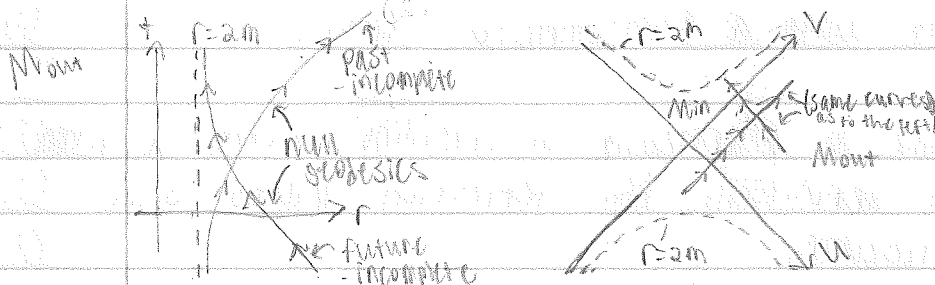 Mout
t
r=2m
past
-incomplete
null
geodesics
r
future
-incomplete
r=2m
V
Min
(same curves
as to the left)
Mout
r=2m
U